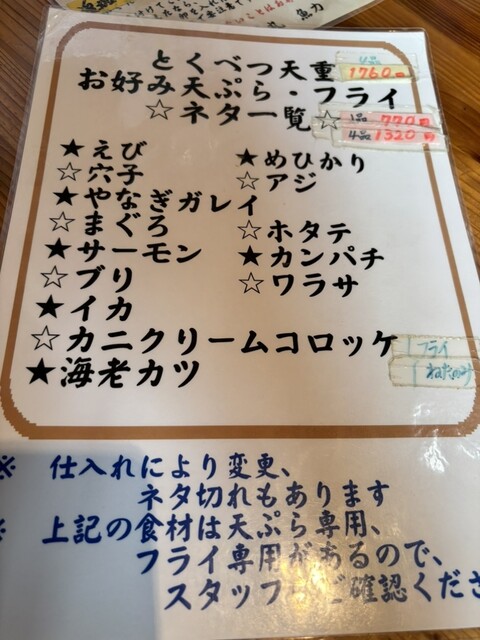 とくべつ天重
4品
1760円
お好み天ぷら・フライ
☆ネタ一覧☆
1品 770円
4品 1320円
★えび
★めひかり
☆穴子
☆アジ
★やなぎガレイ
☆まぐろ
☆ホタテ
★サーモン
★カンパチ
☆ブリ
☆ワラサ
★イカ
☆カニクリームコロッケ
★海老カツ
フライ
ねたのみ
※ 仕入れにより変更、
ネタ切れもあります
※ 上記の食材は天ぷら専用、
フライ専用があるので、
スタッフ ご確認くださ